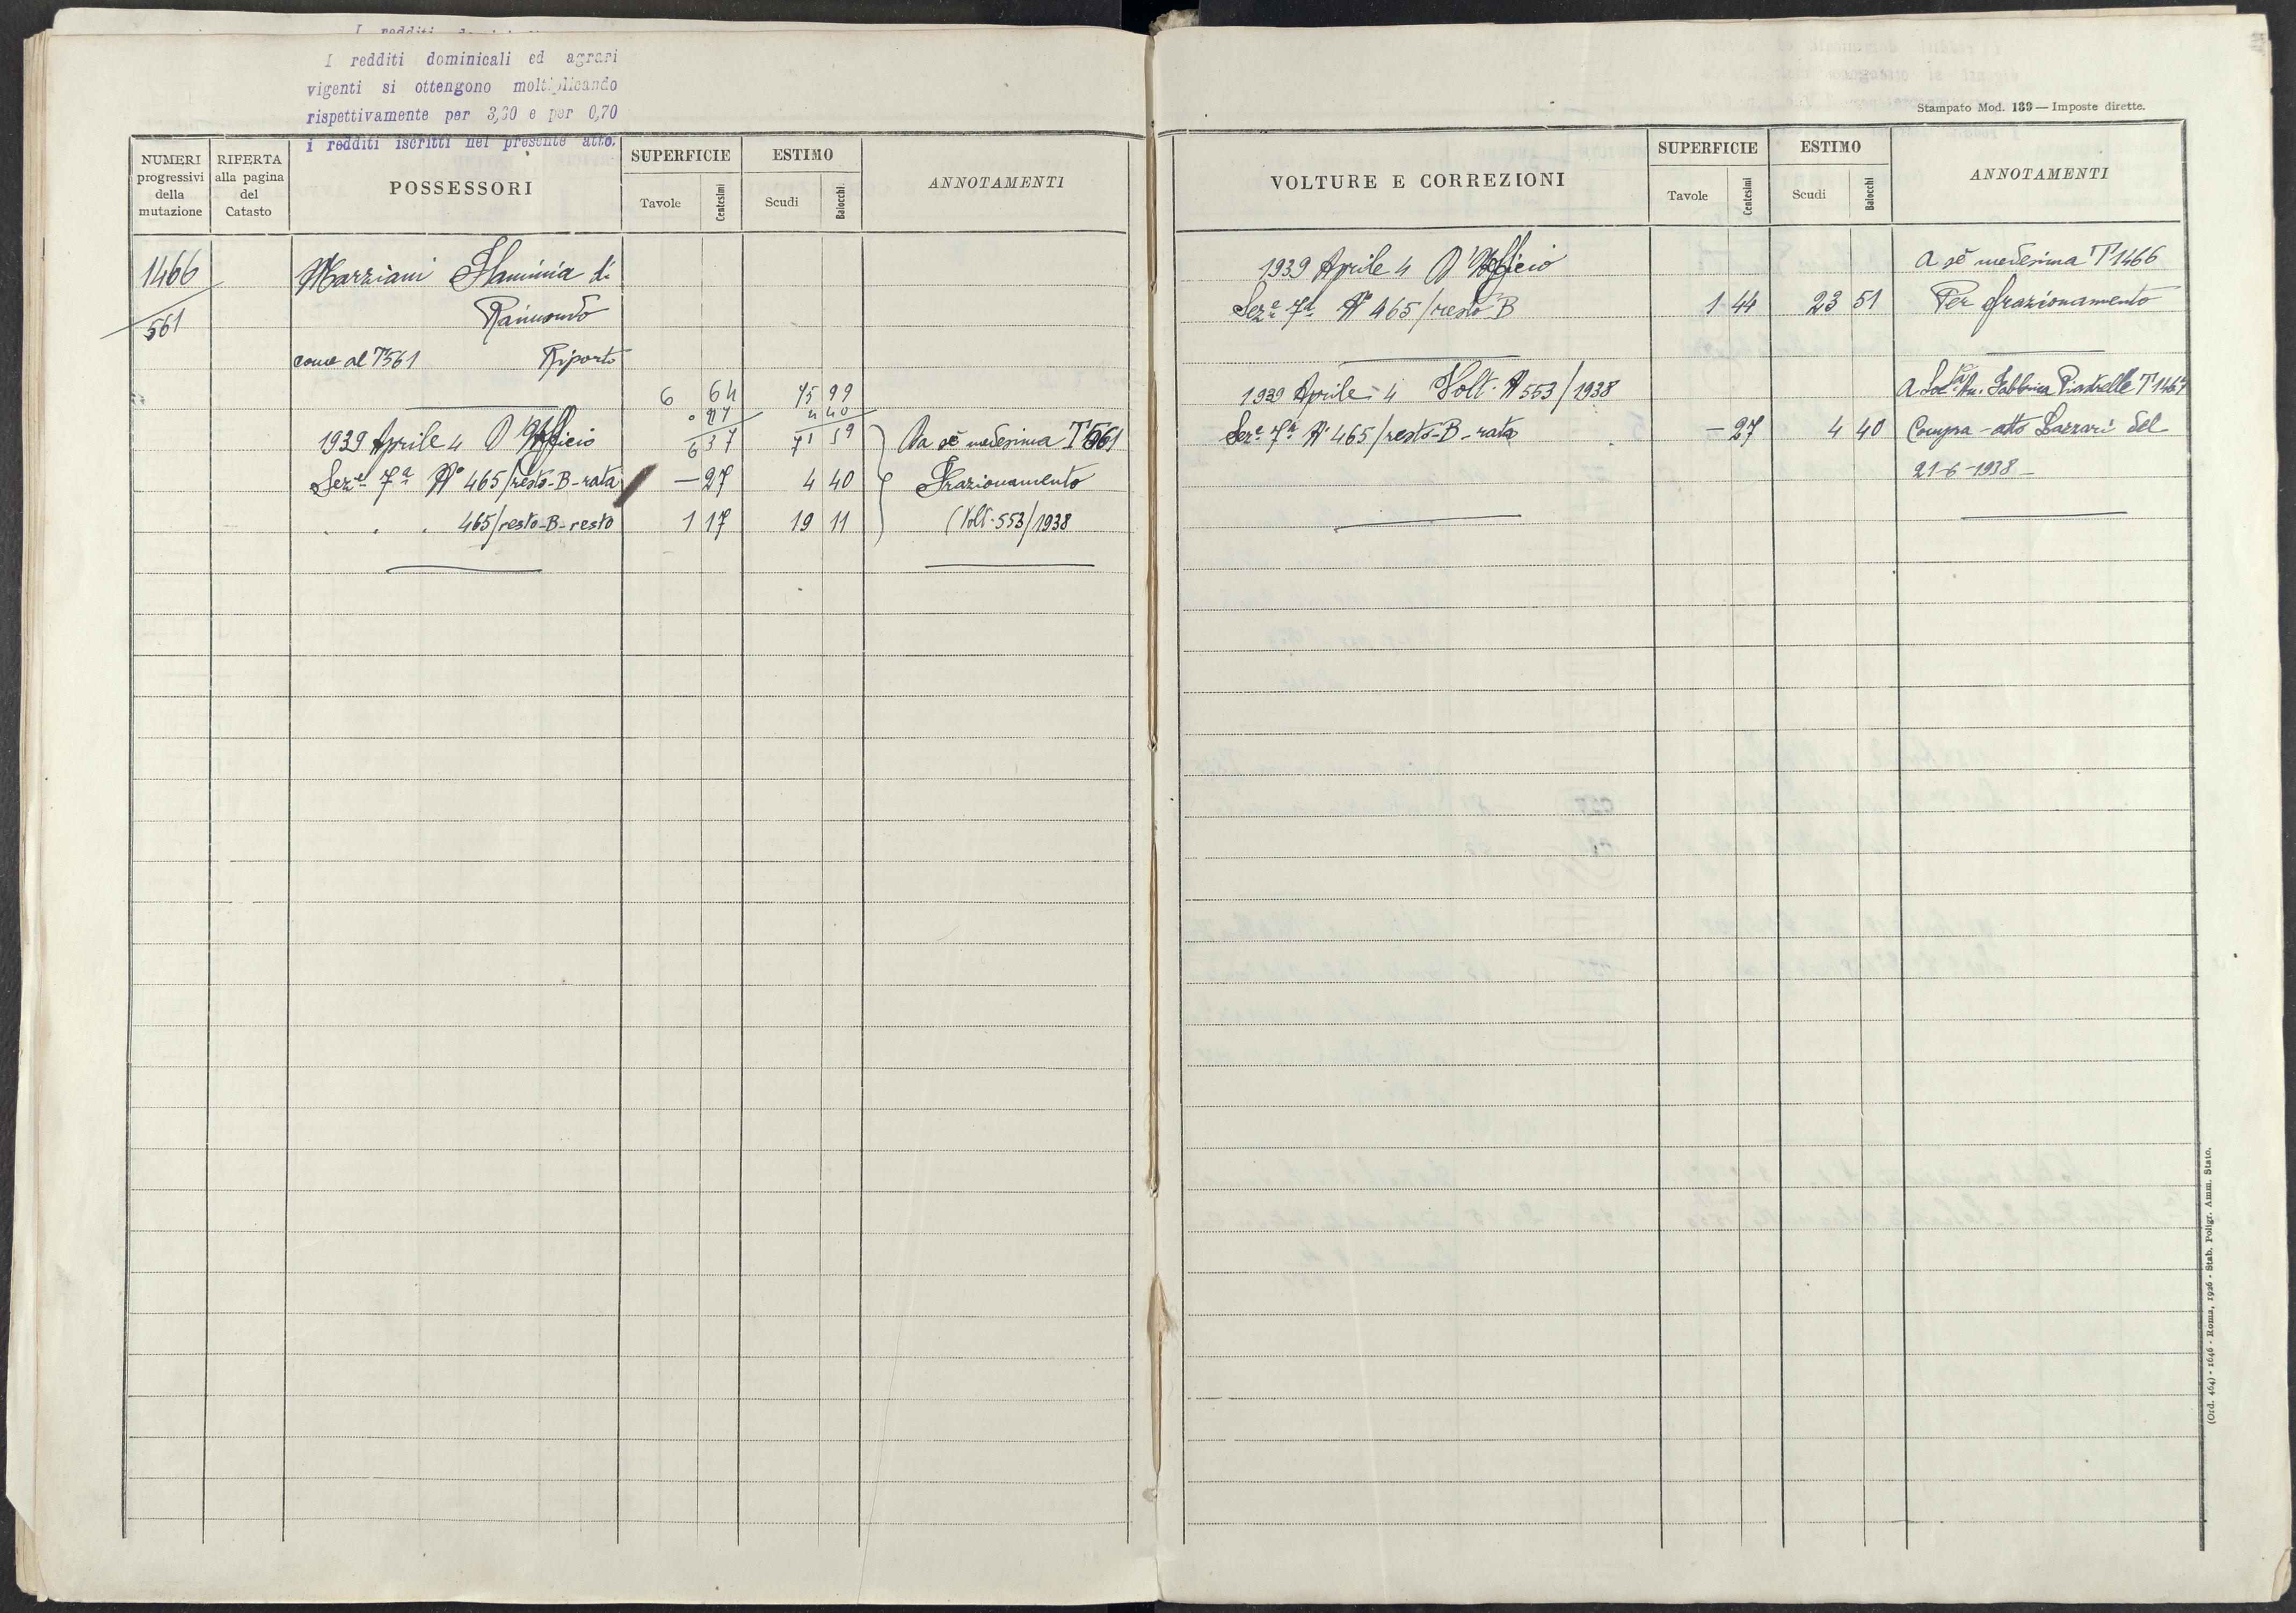 I redditi dominicali ed agrari
vigenti si ottengono moltiplicando
rispettivamente per 3,30 e per 0,70
i redditi iscritti nel presente atto.
NUMERI progressivi della mutazione
RIFERTA alla pagina del Catasto
POSSESSORI
SUPERFICIE
Tavole
Centesimi
ESTIMO
Scudi
Baiocchi
ANNOTAMENTI
1466
561
Marziani Flaminia di
Raimondo
come al T 561 Riporto
6 64 75 99
0 27 4 40
6 37 71 59
1939 Aprile 4 D'Ufficio Da sé medesima T 561
Sez.e 7a No 465/resto-B-rata — 27 4 40 Frazionamento
. . . 465/resto-B-resto 1 17 19 11 (Volt. 553/1938
Stampato Mod. 139 — Imposte dirette.
VOLTURE E CORREZIONI
SUPERFICIE
Tavole
Centesimi
ESTIMO
Scudi
Baiocchi
ANNOTAMENTI
1939 Aprile 4 D'Ufficio A sé medesima T 1466
Sez.e 7a No 465/resto-B 1 44 23 51 Per frazionamento
1939 Aprile 4 Volt. N 553/1938 A Soc.tà An. Fabbrica T 1467
Sez.e 7a No 465/resto-B-rata — 27 4 40 Compra - atto Lazzari del
21-6-1938
(Ord. 464) - 1646 - Roma, 1926 - Stab. Poligr. Amm. Stato.